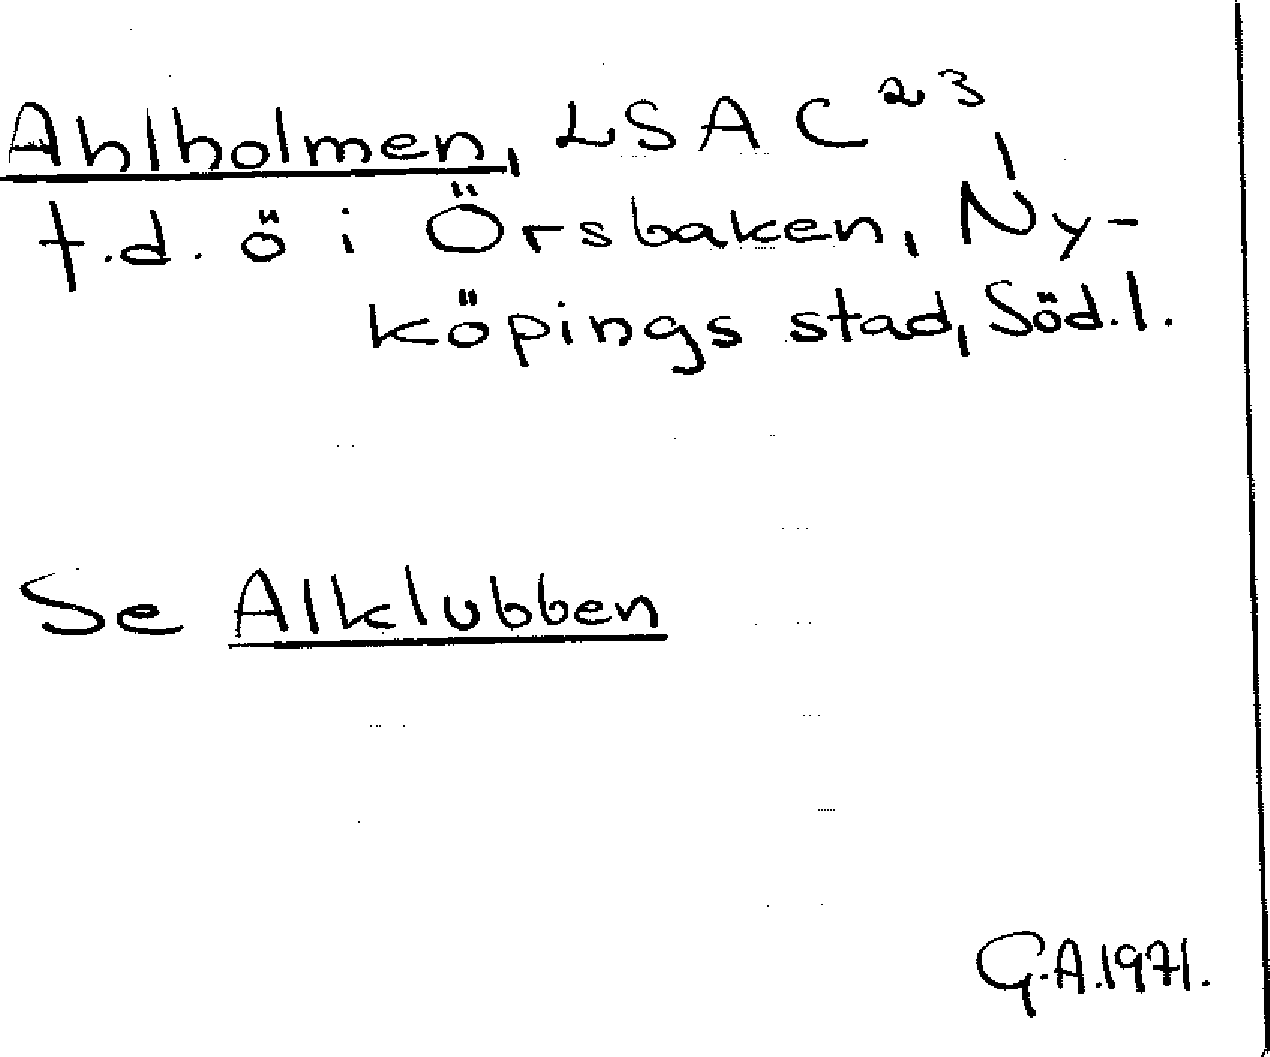 Ahlholmen, LSA C²³,
t.d. ö i Örsbaken, Ny-
köpings stad, Söd.l.
Se Alklubben
G.A.1971.